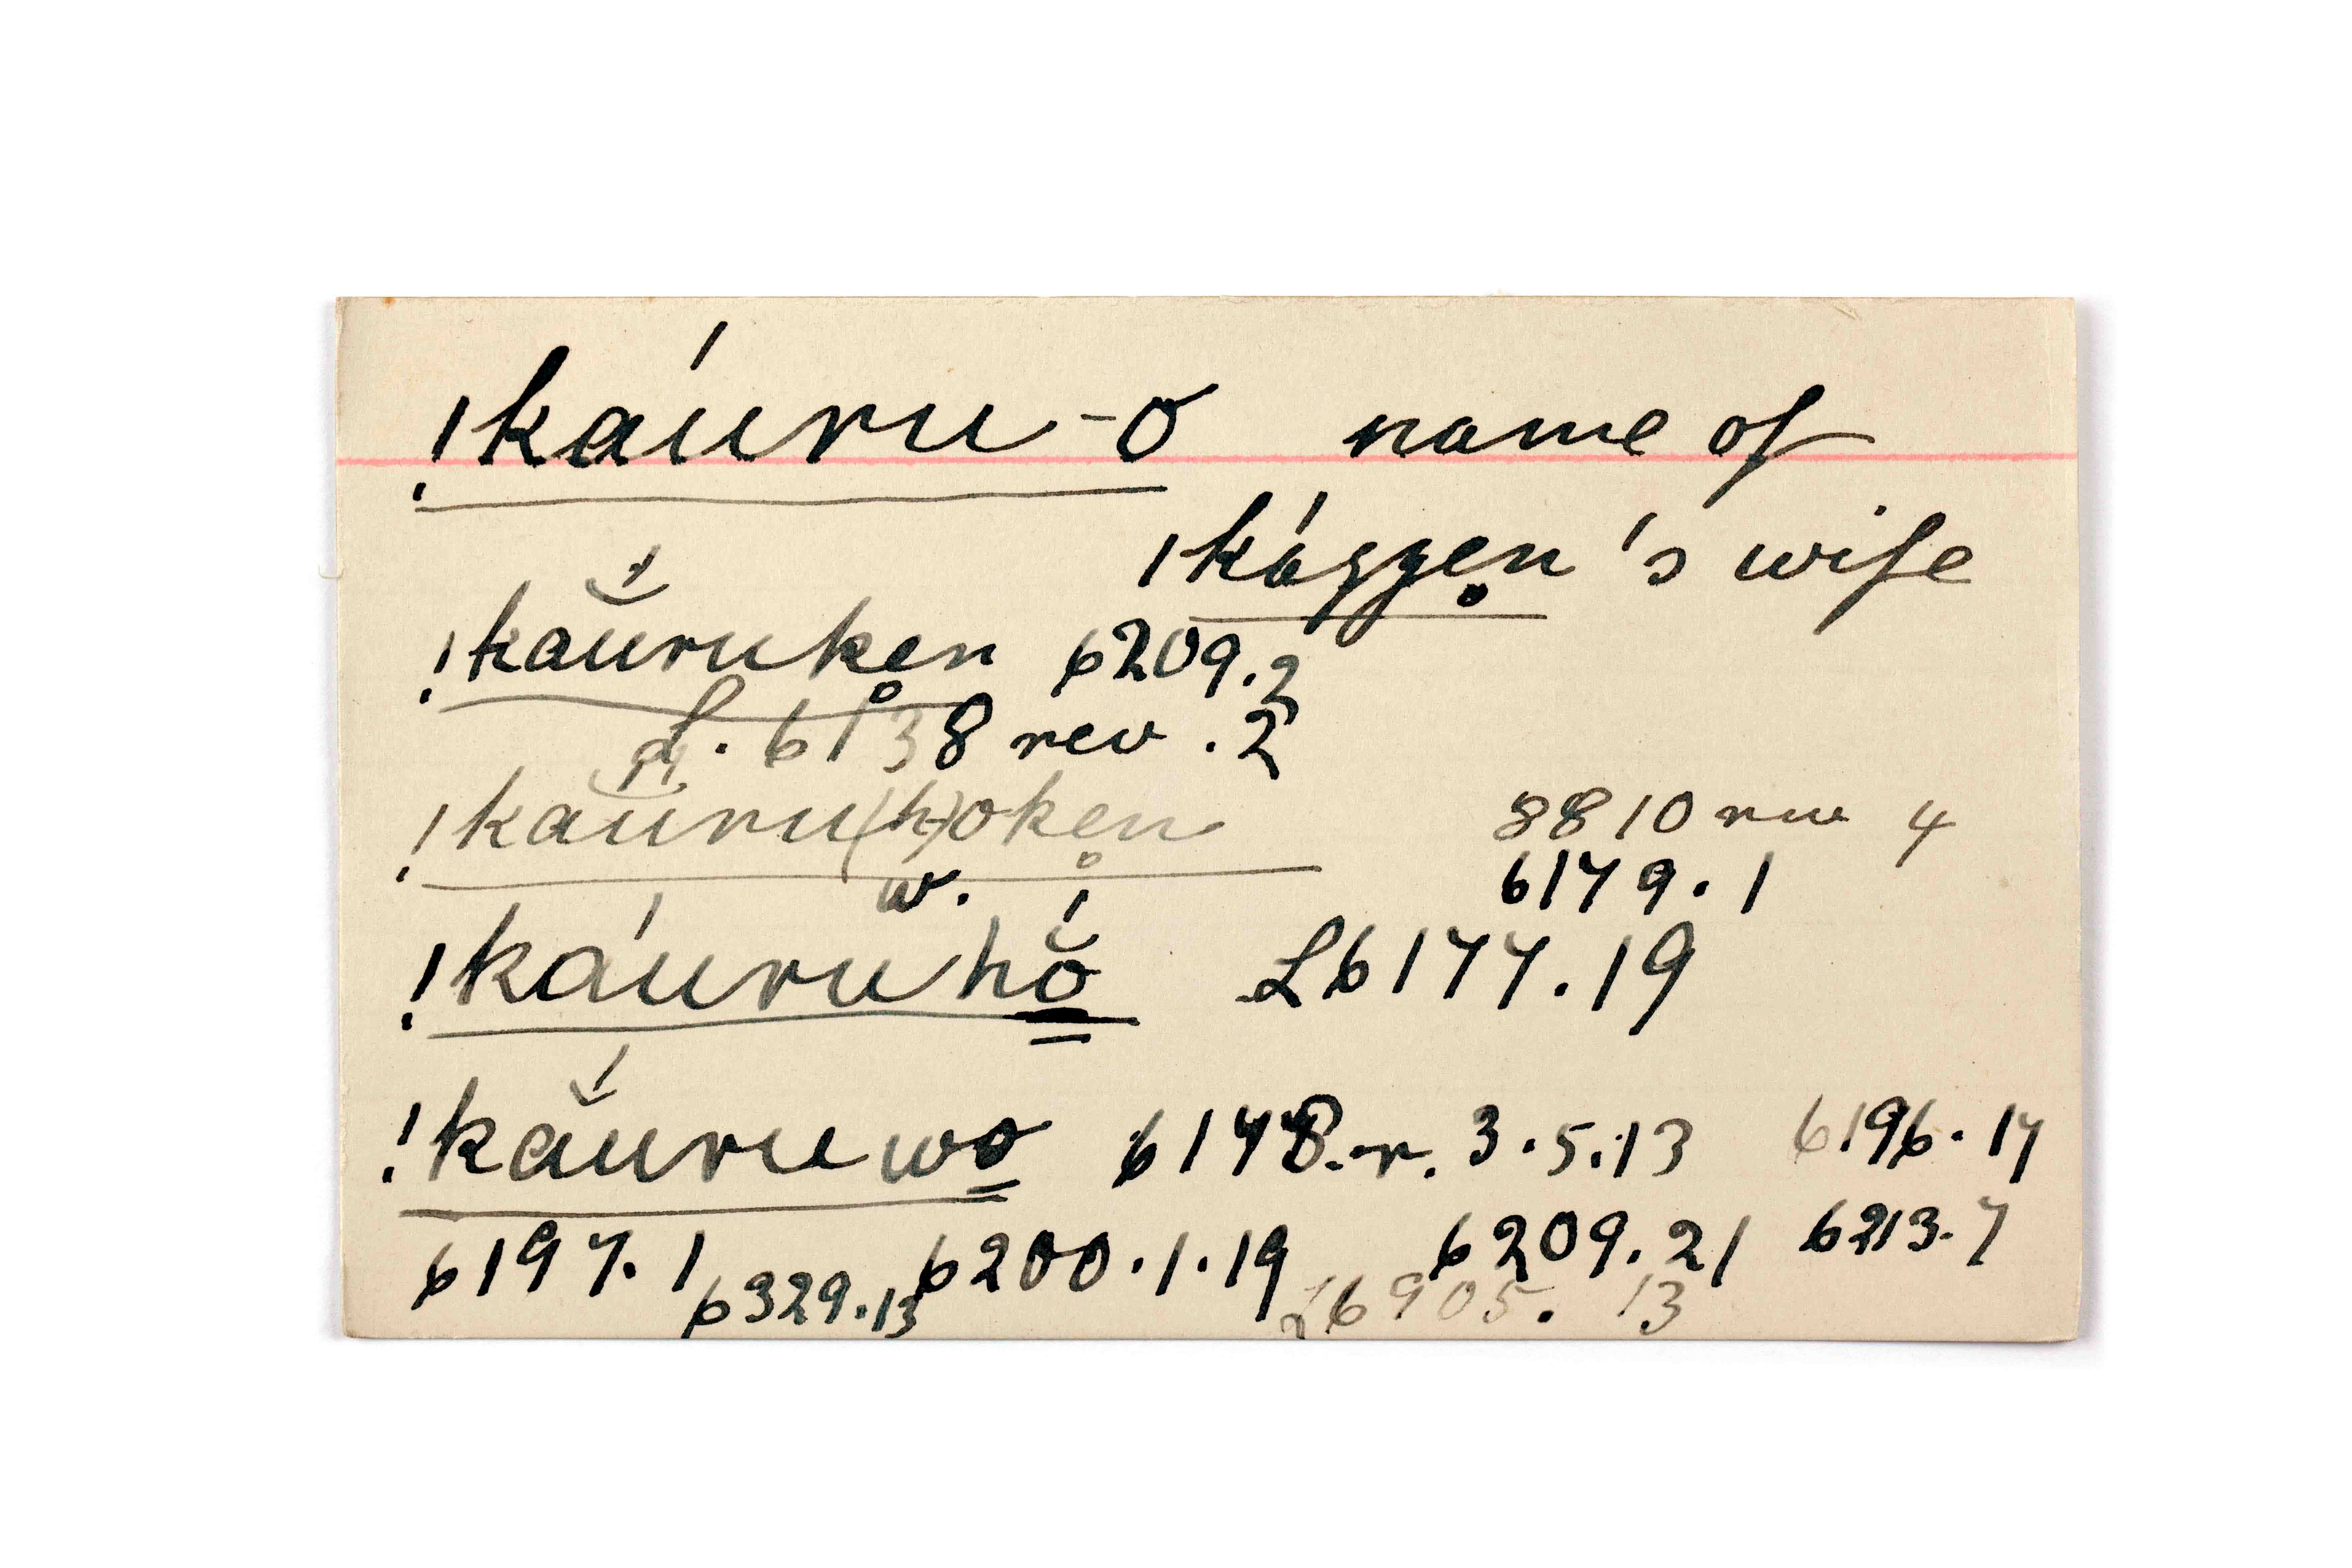 !káuru-o name of
|kággen̥'s wife
!kắuruken̥ 6209.2
L. 6138 rev .2
!kăuru(h)oken̥ 8810 rev 4
w. 6179.1
!káuruhŏ́ L6177.19
!kắuruwo 6178.r.3.5.13 6196.17
6197.1 6200.1.19 6209.21 6213.7
6329.13 L6905. 13